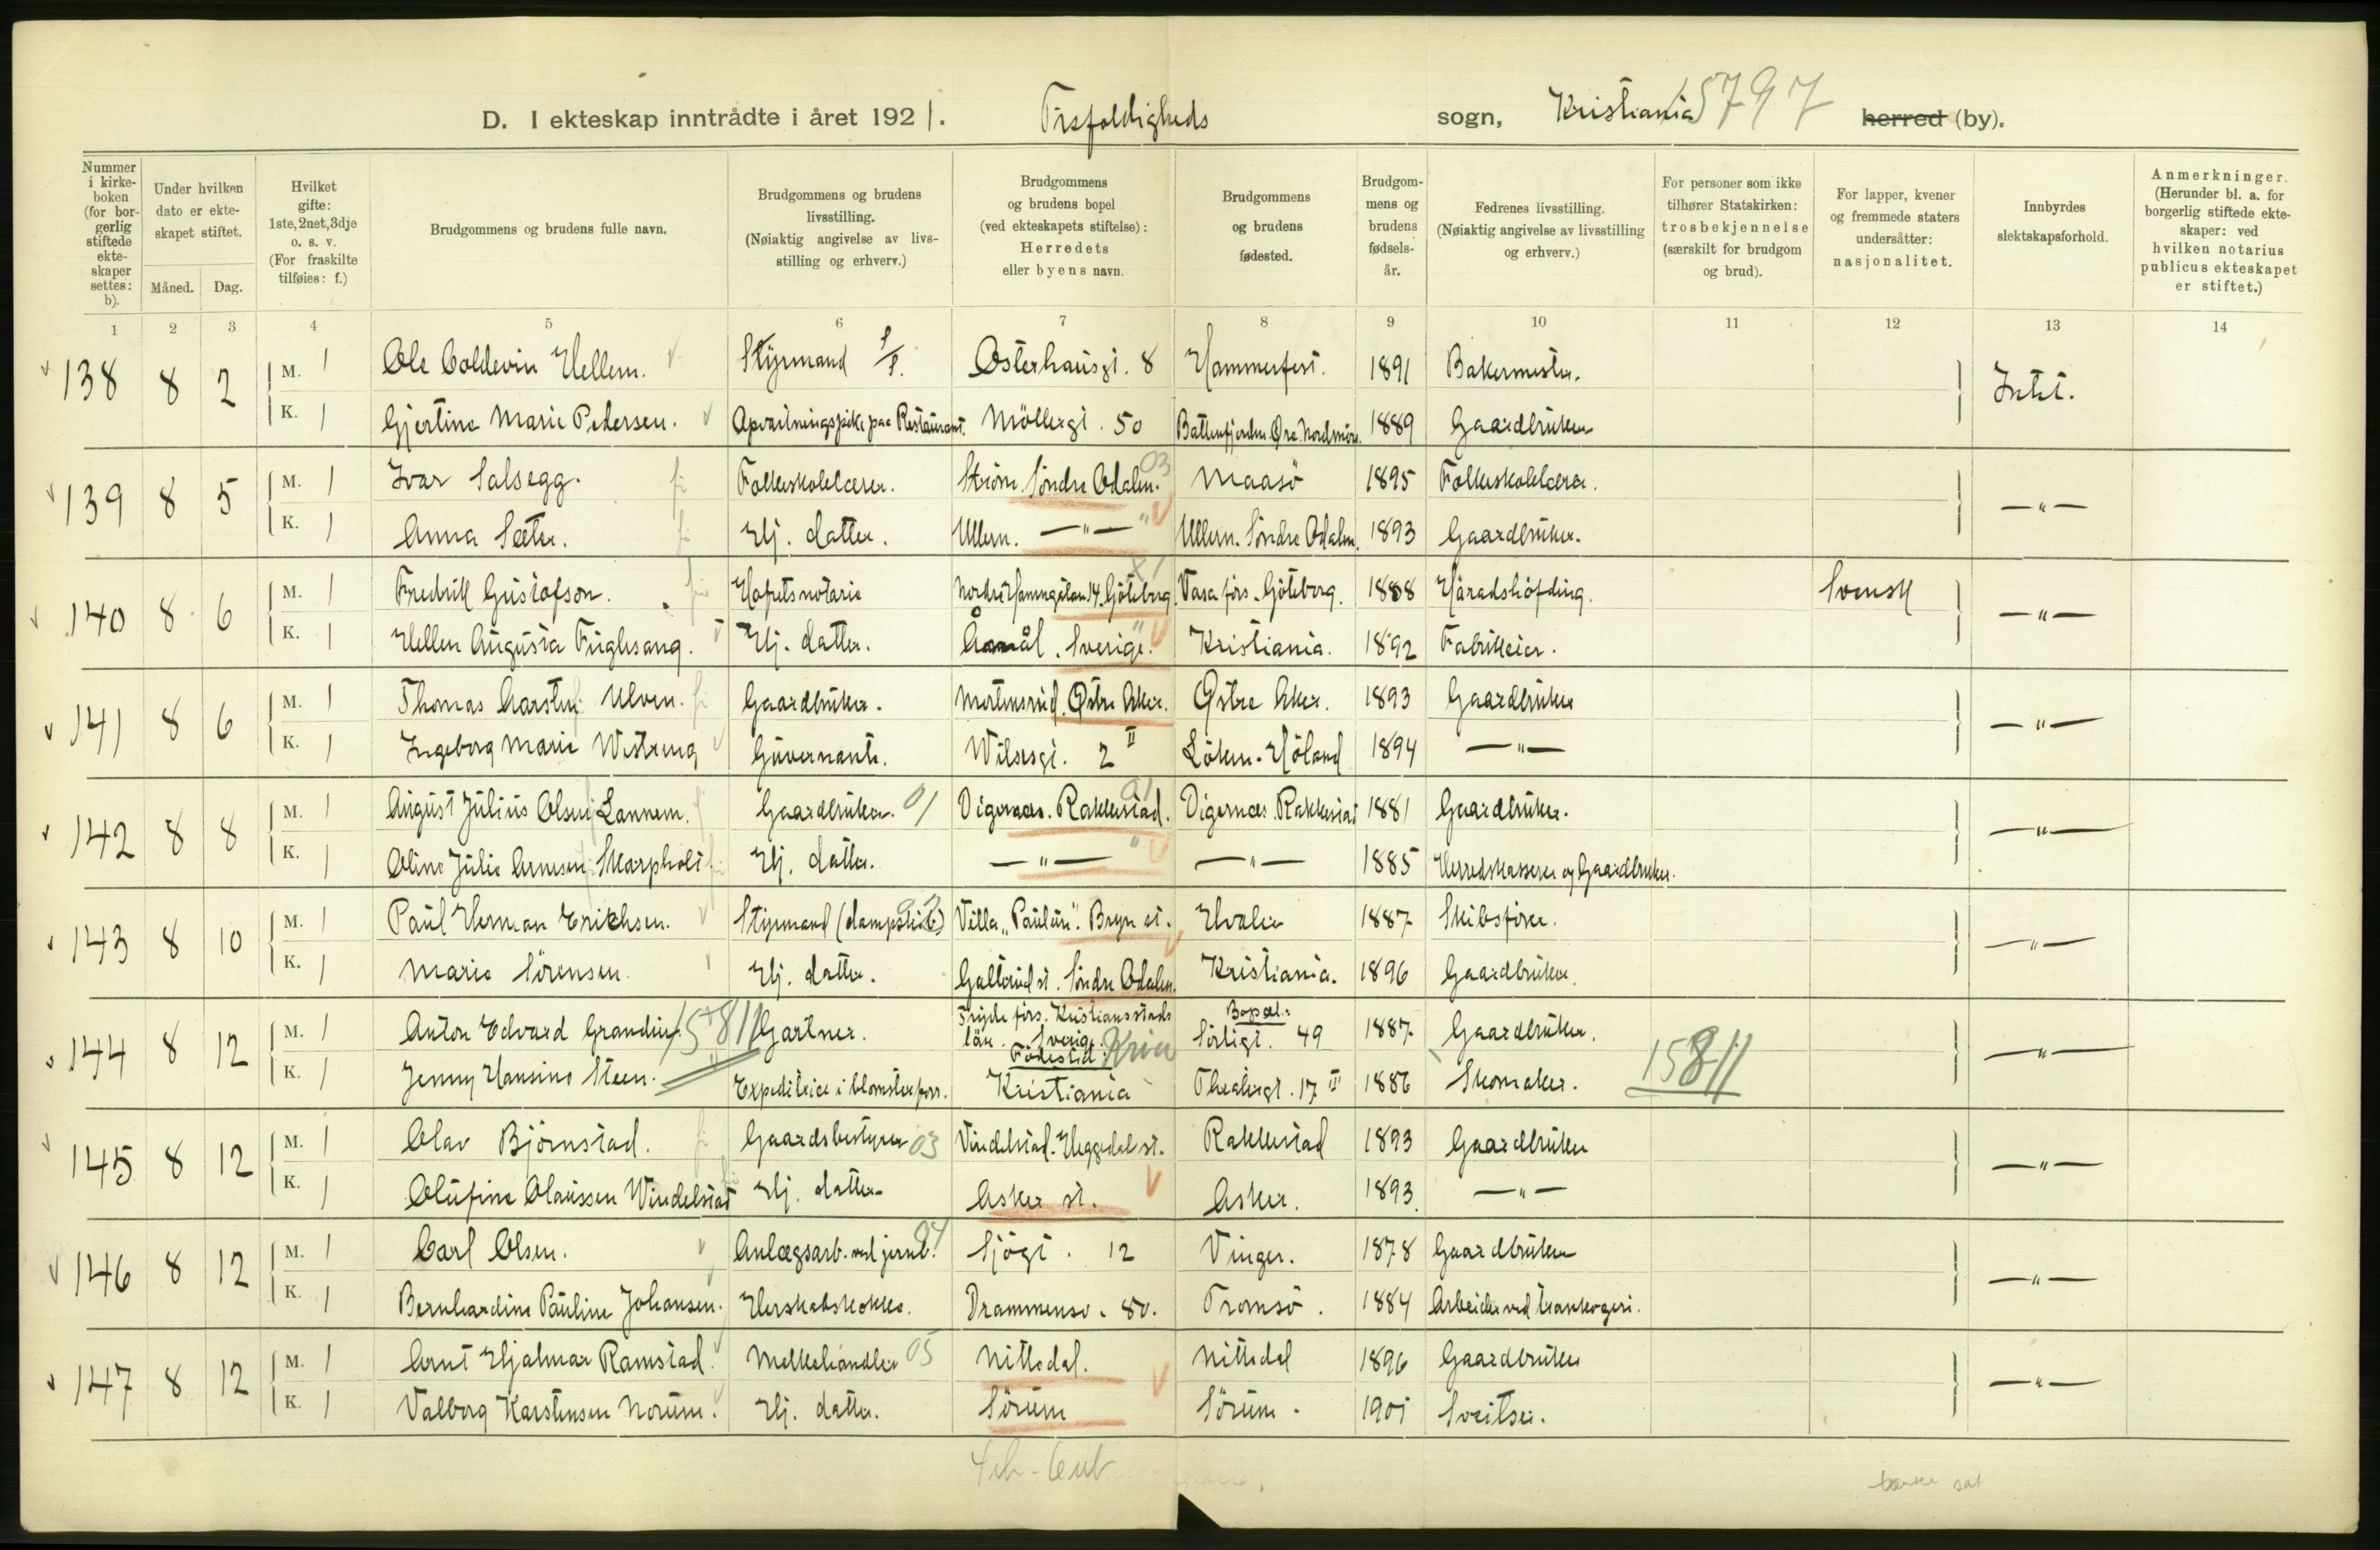 15797
D. I ekteskap inntrådte i året 1921. Trefoldigheds sogn, Kristiania herred (by).
Nummer i kirkeboken (for borgerlig stiftede ekteskaper settes: b).
Under hvilken dato er ekteskapet stiftet.
Måned. Dag.
Hvilket gifte: 1ste, 2net, 3dje o. s. v. (For fraskilte tilføies: f.)
Brudgommens og brudens fulle navn.
Brudgommens og brudens livsstilling. (Nøiaktig angivelse av livsstilling og erhverv.)
Brudgommens og brudens bopel (ved ekteskapets stiftelse): Herredets eller byens navn.
Brudgommens og brudens fødested.
Brudgommens og brudens fødselsår.
Fedrenes livsstilling. (Nøiaktig angivelse av livsstilling og erhverv.)
For personer som ikke tilhører Statskirken: trosbekjennelse (særskilt for brudgom og brud).
For lapper, kvener og fremmede staters undersåtter: nasjonalitet.
Innbyrdes slektskapsforhold.
Anmerkninger. (Herunder bl. a. for borgerlig stiftede ekteskaper: ved hvilken notarius publicus ekteskapet er stiftet.)
1 2 3 4 5 6 7 8 9 10 11 12 13 14
138 8 2 M. 1 Ole Coldevin Hellem. Styrmand Osterhausgt. 8 Hammerfest. 1891 Bakermester. Intet.
K. 1 Gjertine Marie Pedersen. Opvartningspike paa Restaurant. Möllergt. 50 Battenfjorden Øre Nordmöre. 1889 Gaardbruker
139 8 5 M. 1 Ivar Salsegg. Folkeskolelærer. Ström. Söndre Odalen. 03 Maasö 1895 Folkeskolelærer. —"—
K. 1 Anna Sæter. Hj. datter. Ullern. —"— Ullern. Söndre Odalen. 1893 Gaardbruker.
140 8 6 M. 1 Fredrik Gustafson. Hofretsnotarie Nordre Hamngatan 14. Göteborg. Vasa förs. Göteborg. 1888 Häradshöfding. Svensk —"—
K. 1 Hellen Augusta Fuglesang. Hj. datter. Åmål. Sverige. Kristiania. 1892 Fabrikeier.
141 8 6 M. 1 Thomas Carsten Ulven. Gaardbruker. Mortensrud. Østre Aker. Østre Aker. 1893 Gaardbruker —"—
K. 1 Ingeborg Marie Westreng Guvernante. Wilsesgt. 2 II Löken. Höland 1894 —"—
142 8 8 M. 1 August Julius Olsen Lannem. Gaardbruker. 01 Vigernæs. Rakkestad. 01 Vigernæs. Rakkestad 1881 Gaardbruker. —"—
K. 1 Oline Julie Arnesen Skarpholt Hj. datter. —"— —"— 1885 Herredskasserer og Gaardbruker.
143 8 10 M. 1 Paul Herman Erichsen. Styrmand (dampskib) Villa "Paulün". Bryn st. Hvaler 1887 Skibsförer. —"—
K. 1 Marie Sörensen. Hj. datter. Galterud st. Söndre Odalen. Kristiania. 1896 Gaardbruker.
144 8 12 M. 1 Anton Edvard Grandin. 15811 Gartner. förs. Kristiansstads län. Sverige. Bopæl: Sörligt. 49 1887 Gaardbruker. —"—
K. 1 Jenny Hansine Steen. Expeditrice i blomsterforr. Födested: Kristiania Kria Theatergt. 17 III 1886 Skomaker. 15811
145 8 12 M. 1 Olav Björnstad. Gaardsbestyrer 03 Vindelstad. Heggedal st. Rakkestad 1893 Gaardbruker —"—
K. 1 Olufine Olaussen Windelstad Hj. datter. Asker st. Asker. 1893. —"—
146 8 12 M. 1 Carl Olsen. Anlægsarb. ved jernb. 04 Sjögt. 12 Vinger. 1878 Gaardbruker —"—
K. 1 Bernhardine Pauline Johansen. Herskabskokke. Drammensv. 80. Tromsö. 1884 Arbeider ved trankogeri.
147 8 12 M. 1 Arnt Hjalmar Ramstad. Melkehandler 05 Nittedal. Nittedal 1896 Gaardbruker —"—
K. 1 Valborg Karstensen Norum. Hj. datter. Sörum Sörum. 1901 Sveitser.